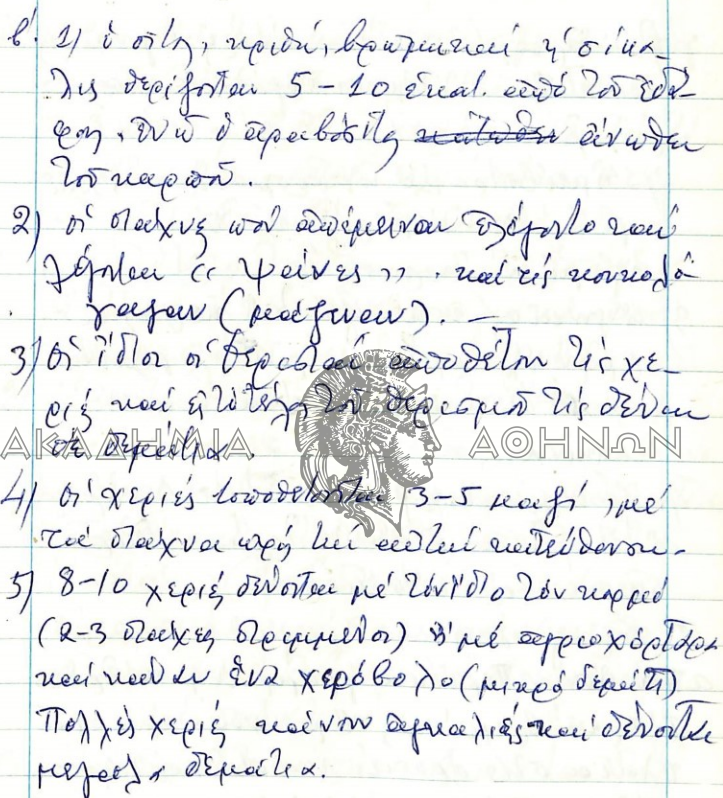 β'. 1) ὁ σῖτος, κριθή, βρώμη καὶ ἡ σίκα-
λις θερίζονται 5-10 ἑκατ. ἀπὸ τοῦ ἐδά-
φους, ἐνῶ ὁ ἀραβόσιτος κάτωθεν ἄνωθεν
τοῦ καρποῦ.
2) οἱ στάχυς ποὺ ἀπέμειναν ἐλέγοντο καὶ
λέγονται « ψαίνες ». καὶ τὶς κουκολό-
γαγαν (μάζευαν). —
3) Οἱ ἴδιοι οἱ θερισταὶ ἀποθέτουν τὶς χε-
ριὲς καὶ εἰς τὸ τέλος τοῦ θερισμοῦ τὶς δένουν
σὲ δεμάτια.
ΑΚΑΔΗΜΙΑ ΑΘΗΝΩΝ
4) οἱ χεριὲς τοποθετοῦνται 3-5 μαζί, μὲ
τὰ στάχυα πρὸς τὴ αὐτὴ κατεύθυνση.
5) 8-10 χεριὲς δένονται μὲ τὸν ἴδιο τὸν κορμό
(2-3 στάχες στριμμένοι) ἢ μὲ ἀγριοχόρταρα
καὶ κάνουν ἕνα χερόβολο (μικρὸ δεμάτι)
Πολλὲς χεριὲς κάνουν ἀγκαλιὲς καὶ δένονται
μεγάλα δεμάτια.